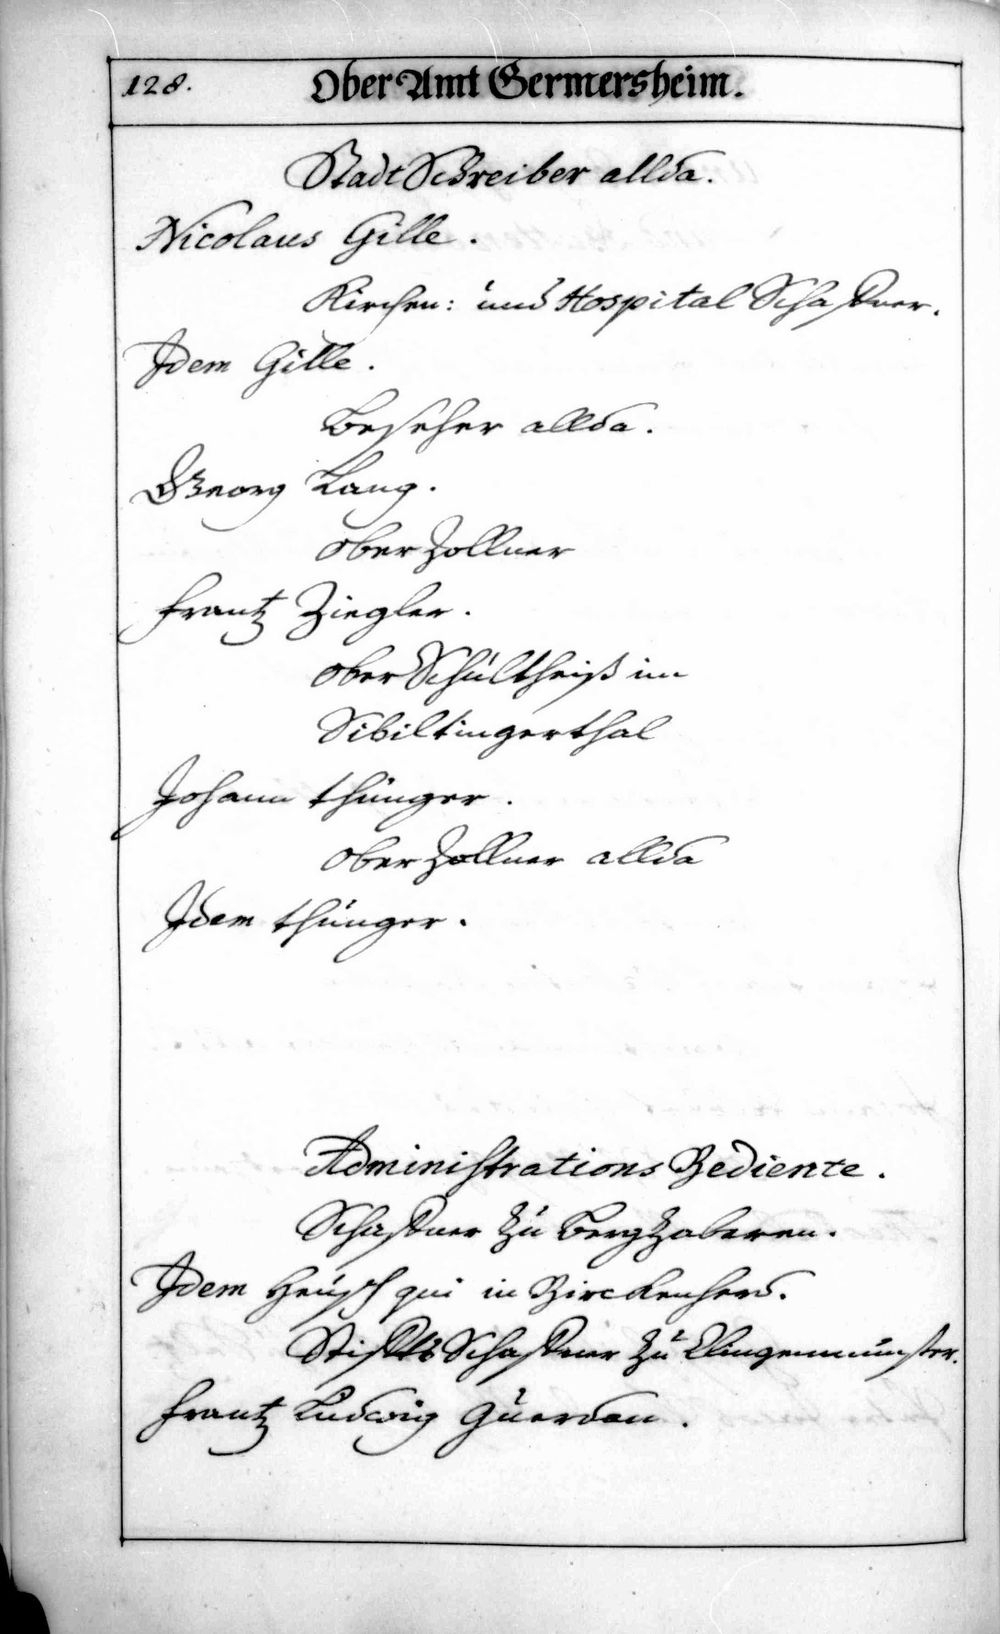 128.
Ober Amt Germersheim.
Stadt Schreiber allda.
Nicolaus Gille.
Kirchen: und Hospital Schaffner.
Idem Gille.
Beseher allda.
Georg Lang.
Ober Zollner
Frantz Ziegler.
Ober Schultheiß im
Sibiltingerthal
Johann Thünger.
Ober Zollner allda
Idem Thünger.
Administrations Bediente.
Schaffner zu Bergzaberen.
Idem qui in Birckenherd.
Stiffts Schaffner zu Klingenmünster.
Frantz Ludwig Guerdan.